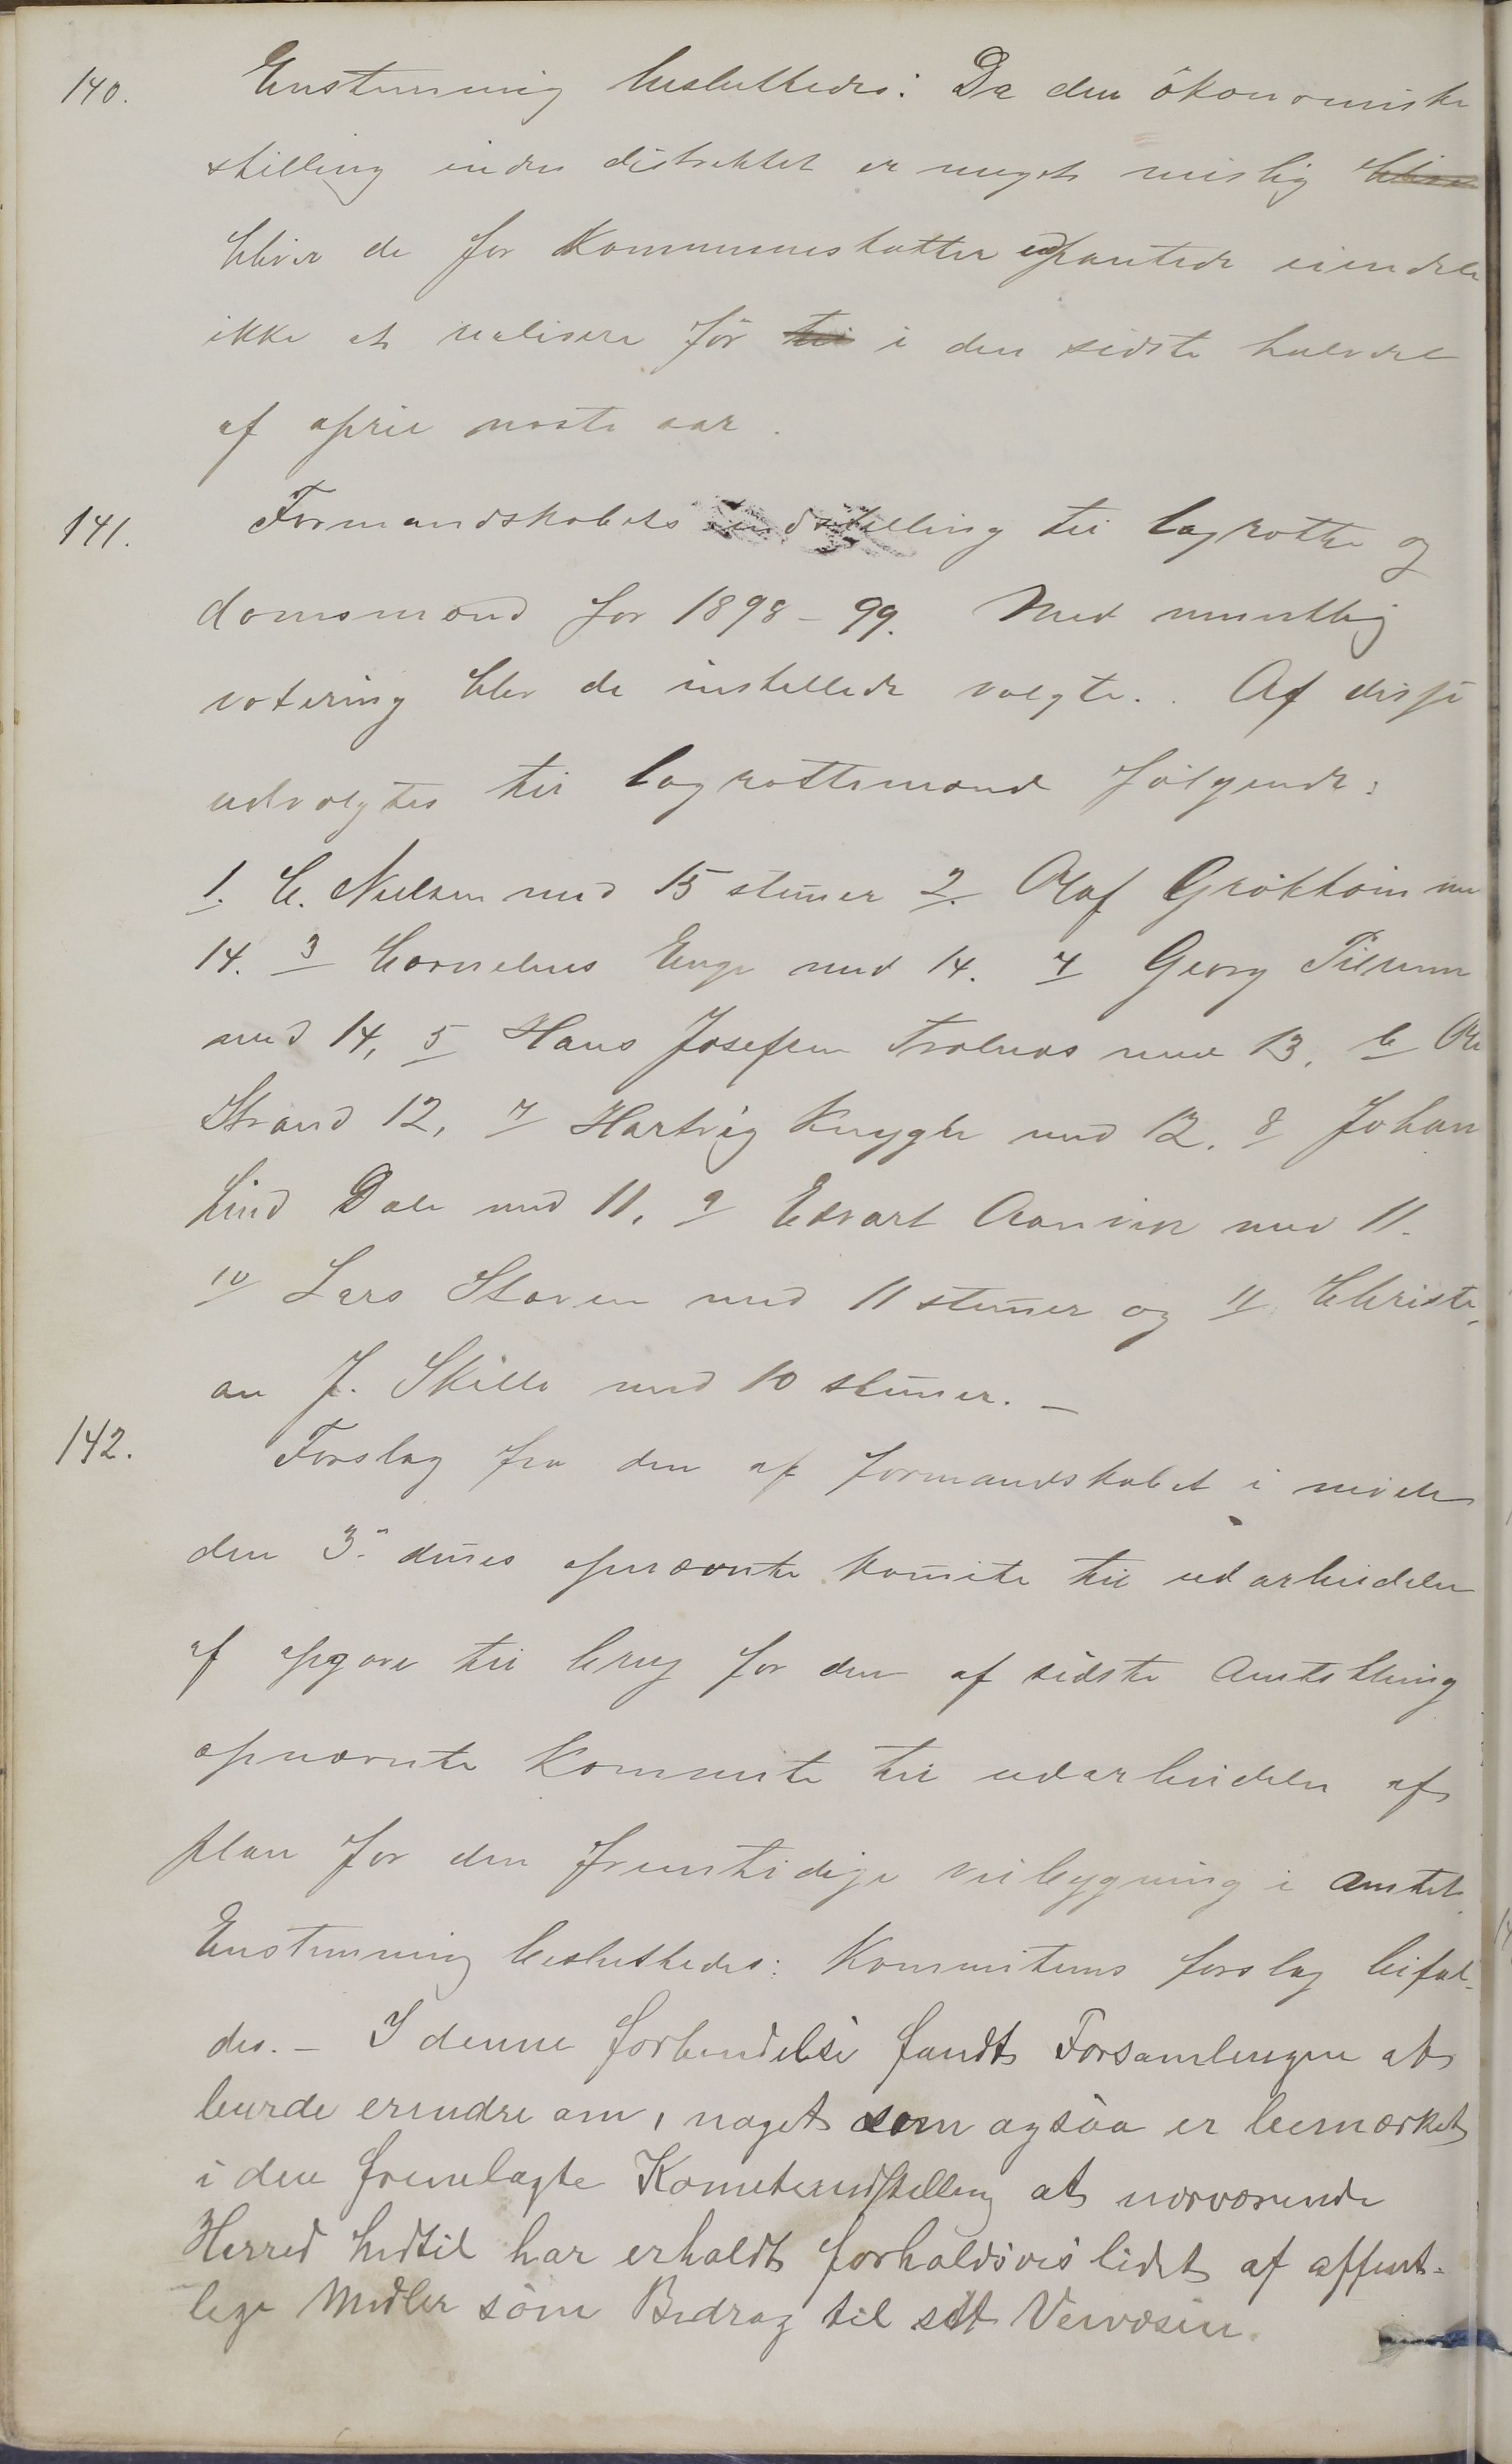 140. Enstemmig besluttedes: Da den økonomiske
stilling inden distriktet er meget mislig bliver
bliver de for Kommuneskatter udpantede eiendele
ikke at realisere før til i den sidste halvdel
af april næste aar.
141. Formandskabets indstilling til lagrette og
domsmænd for 1898-99. Med mundtlig
votering blev de instillede valgte. Af disse
udvalgtes til lagrettemænd følgende:
1. C. Nielsen med 15 stemer 2. Olaf Gröttöin
14. 3 Cornelius Enge med 14. 4 Georg
med 14, 5 Hans Josefsen med 13. 6
Strand 12, 7 Hartvig Knygh med 12. 8 Johan
Lind Dale med 11, 9 Edvart Aanvik med 11.
10 Lars Staven med 11 stemer og 11 Christi-
an J. Skille med 10 stemer. -
142. Forslag fra den af formandskabet i møde
den 3. dennes opnævnte komite til udarbeidelse
af opgave til brug for den af sidste Amtsthing
opnævnte Kommite til udarbeidelse af
plan for den fremtidige veibygning i Amtet.
Enstemmig besluttedes: Kommiteens forslag bifal-
des. - I denne forbindelse fandt Forsamlingen at
burde erindre om, noget som ogsaa er bemærket
i den fremlagte Kometeindstilling at nærværende
Herred hidtil har erholdt forholdsvis lidet af offent-
lige Midler som Bidrag til sitt Veivæsen.